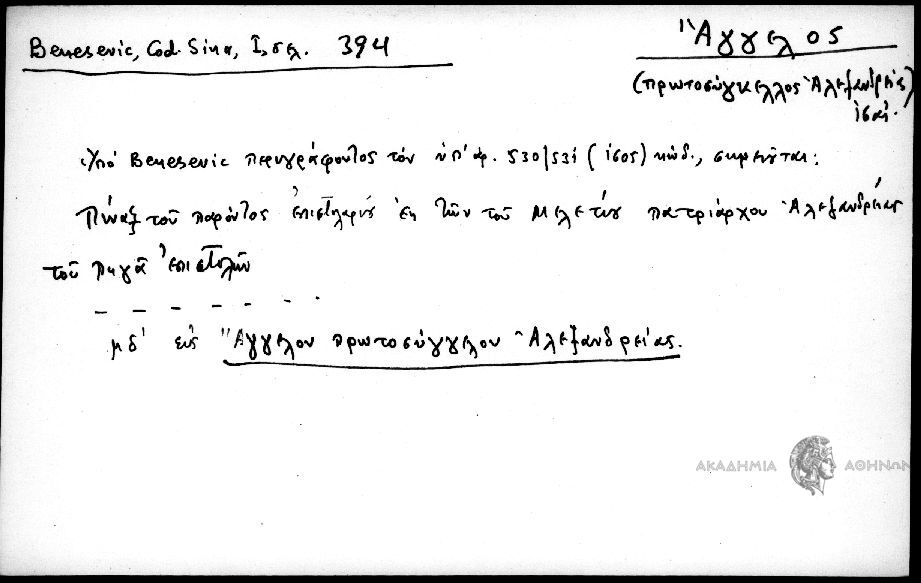 Benesevic, Cod. Sina, Iσελ. 394
Ἄγγελος
(πρωτοσύγκελλος Ἀλεξανδρείας)
ις΄ αἰ.
Ὑπό Benesevic περιγράφοντος τόν ὑπ' ἀρ. 530/531 (1605) κώδ., σημειοῦται:
Πίναξ τοῦ παρόντος ἐπιστολαρίου ἐκ τῶν τοῦ Μελετίου πατριάρχου Ἀλεξανδρείας
τοῦ Πηγᾶ ἐπιστολῶν
– – – – – – .
μδ' εἰς Ἄγγελον πρωτοσύγγελον Ἀλεξανδρείας.
ΑΚΑΔΗΜΙΑ ΑΘΗΝΩΝ